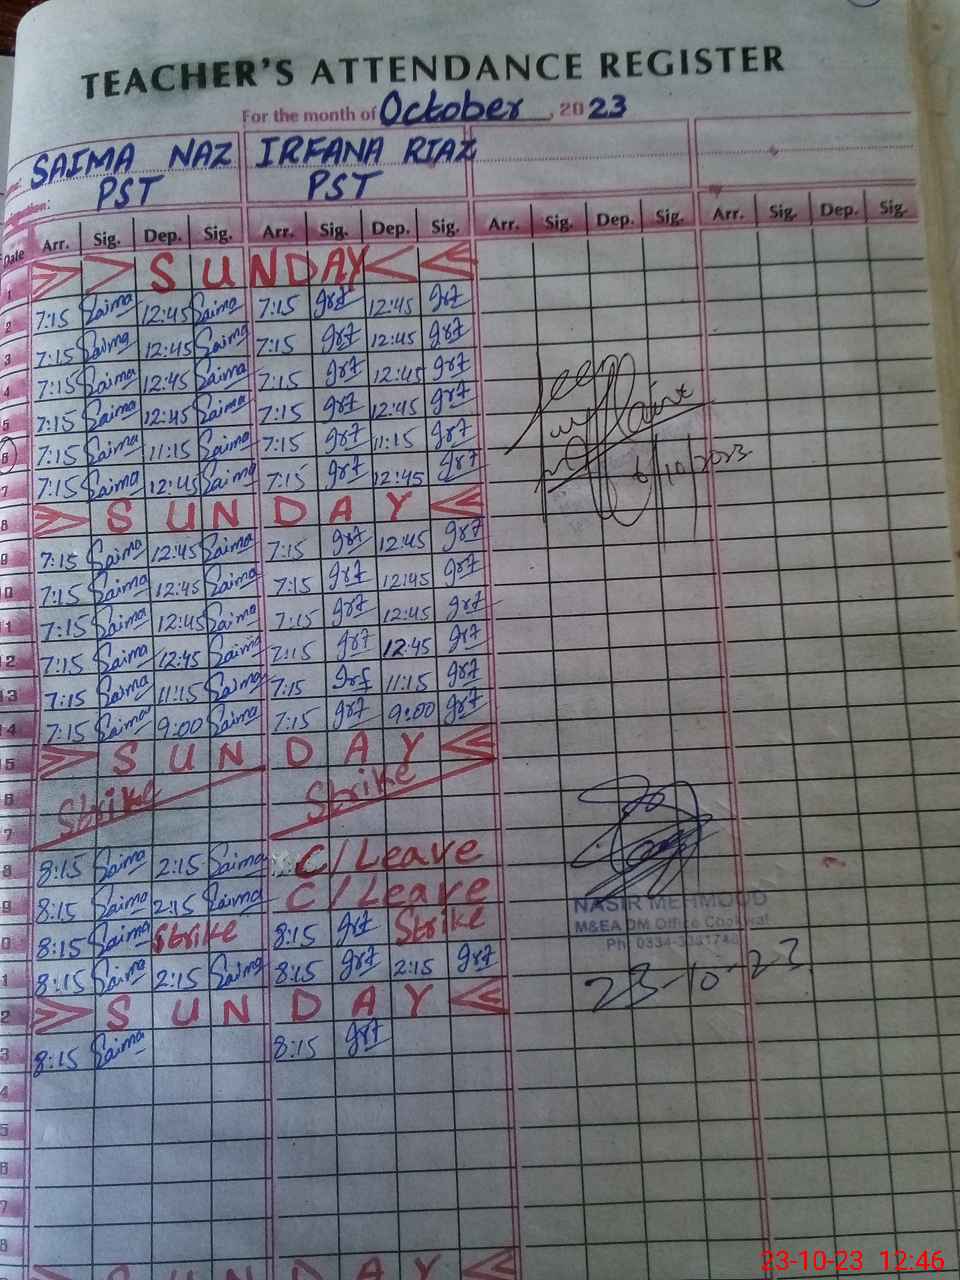 TEACHER'S ATTENDANCE REGISTER
For the month of October, 2023
SAIMA NAZ IRFANA RIAZ
PST PST
Date Arr. Sig. Dep. Sig. Arr. Sig. Dep. Sig. Arr. Sig. Dep. Sig. Arr. Sig. Dep. Sig.
1 SUNDAY
2 7:15 Saima 12:45 Saima 7:15 12:45
3 7:15 Saima 12:45 Saima 7:15 12:45
4 7:15 Saima 12:45 Saima 7:15 12:45
5 7:15 Saima 12:45 Saima 7:15 12:45
6 7:15 Saima 11:15 Saima 7:15 11:15
7 7:15 Saima 12:45 Saima 7:15 12:45
6/10/2023
8 SUNDAY
9 7:15 Saima 12:45 Saima 7:15 12:45
0 7:15 Saima 12:45 Saima 7:15 12:45
1 7:15 Saima 12:45 Saima 7:15 12:45
12 7:15 Saima 12:45 Saima 7:15 12:45
13 7:15 Saima 11:15 Saima 7:15 11:15
14 7:15 Saima 9:00 Saima 7:15 9:00
15 SUNDAY
6 Strike Strike
7
8 8:15 Saima 2:15 Saima C/Leave
9 8:15 Saima 2:15 Saima C/Leave
0 8:15 Saima Strike 8:15 Strike
1 8:15 Saima 2:15 Saima 8:15 2:15
NASIR MEHMOOD
M&EA DM Office
23-10-23
2 SUNDAY
3 8:15 Saima 8:15
4
5
6
7
8
SUNDAY
23-10-23 12:46